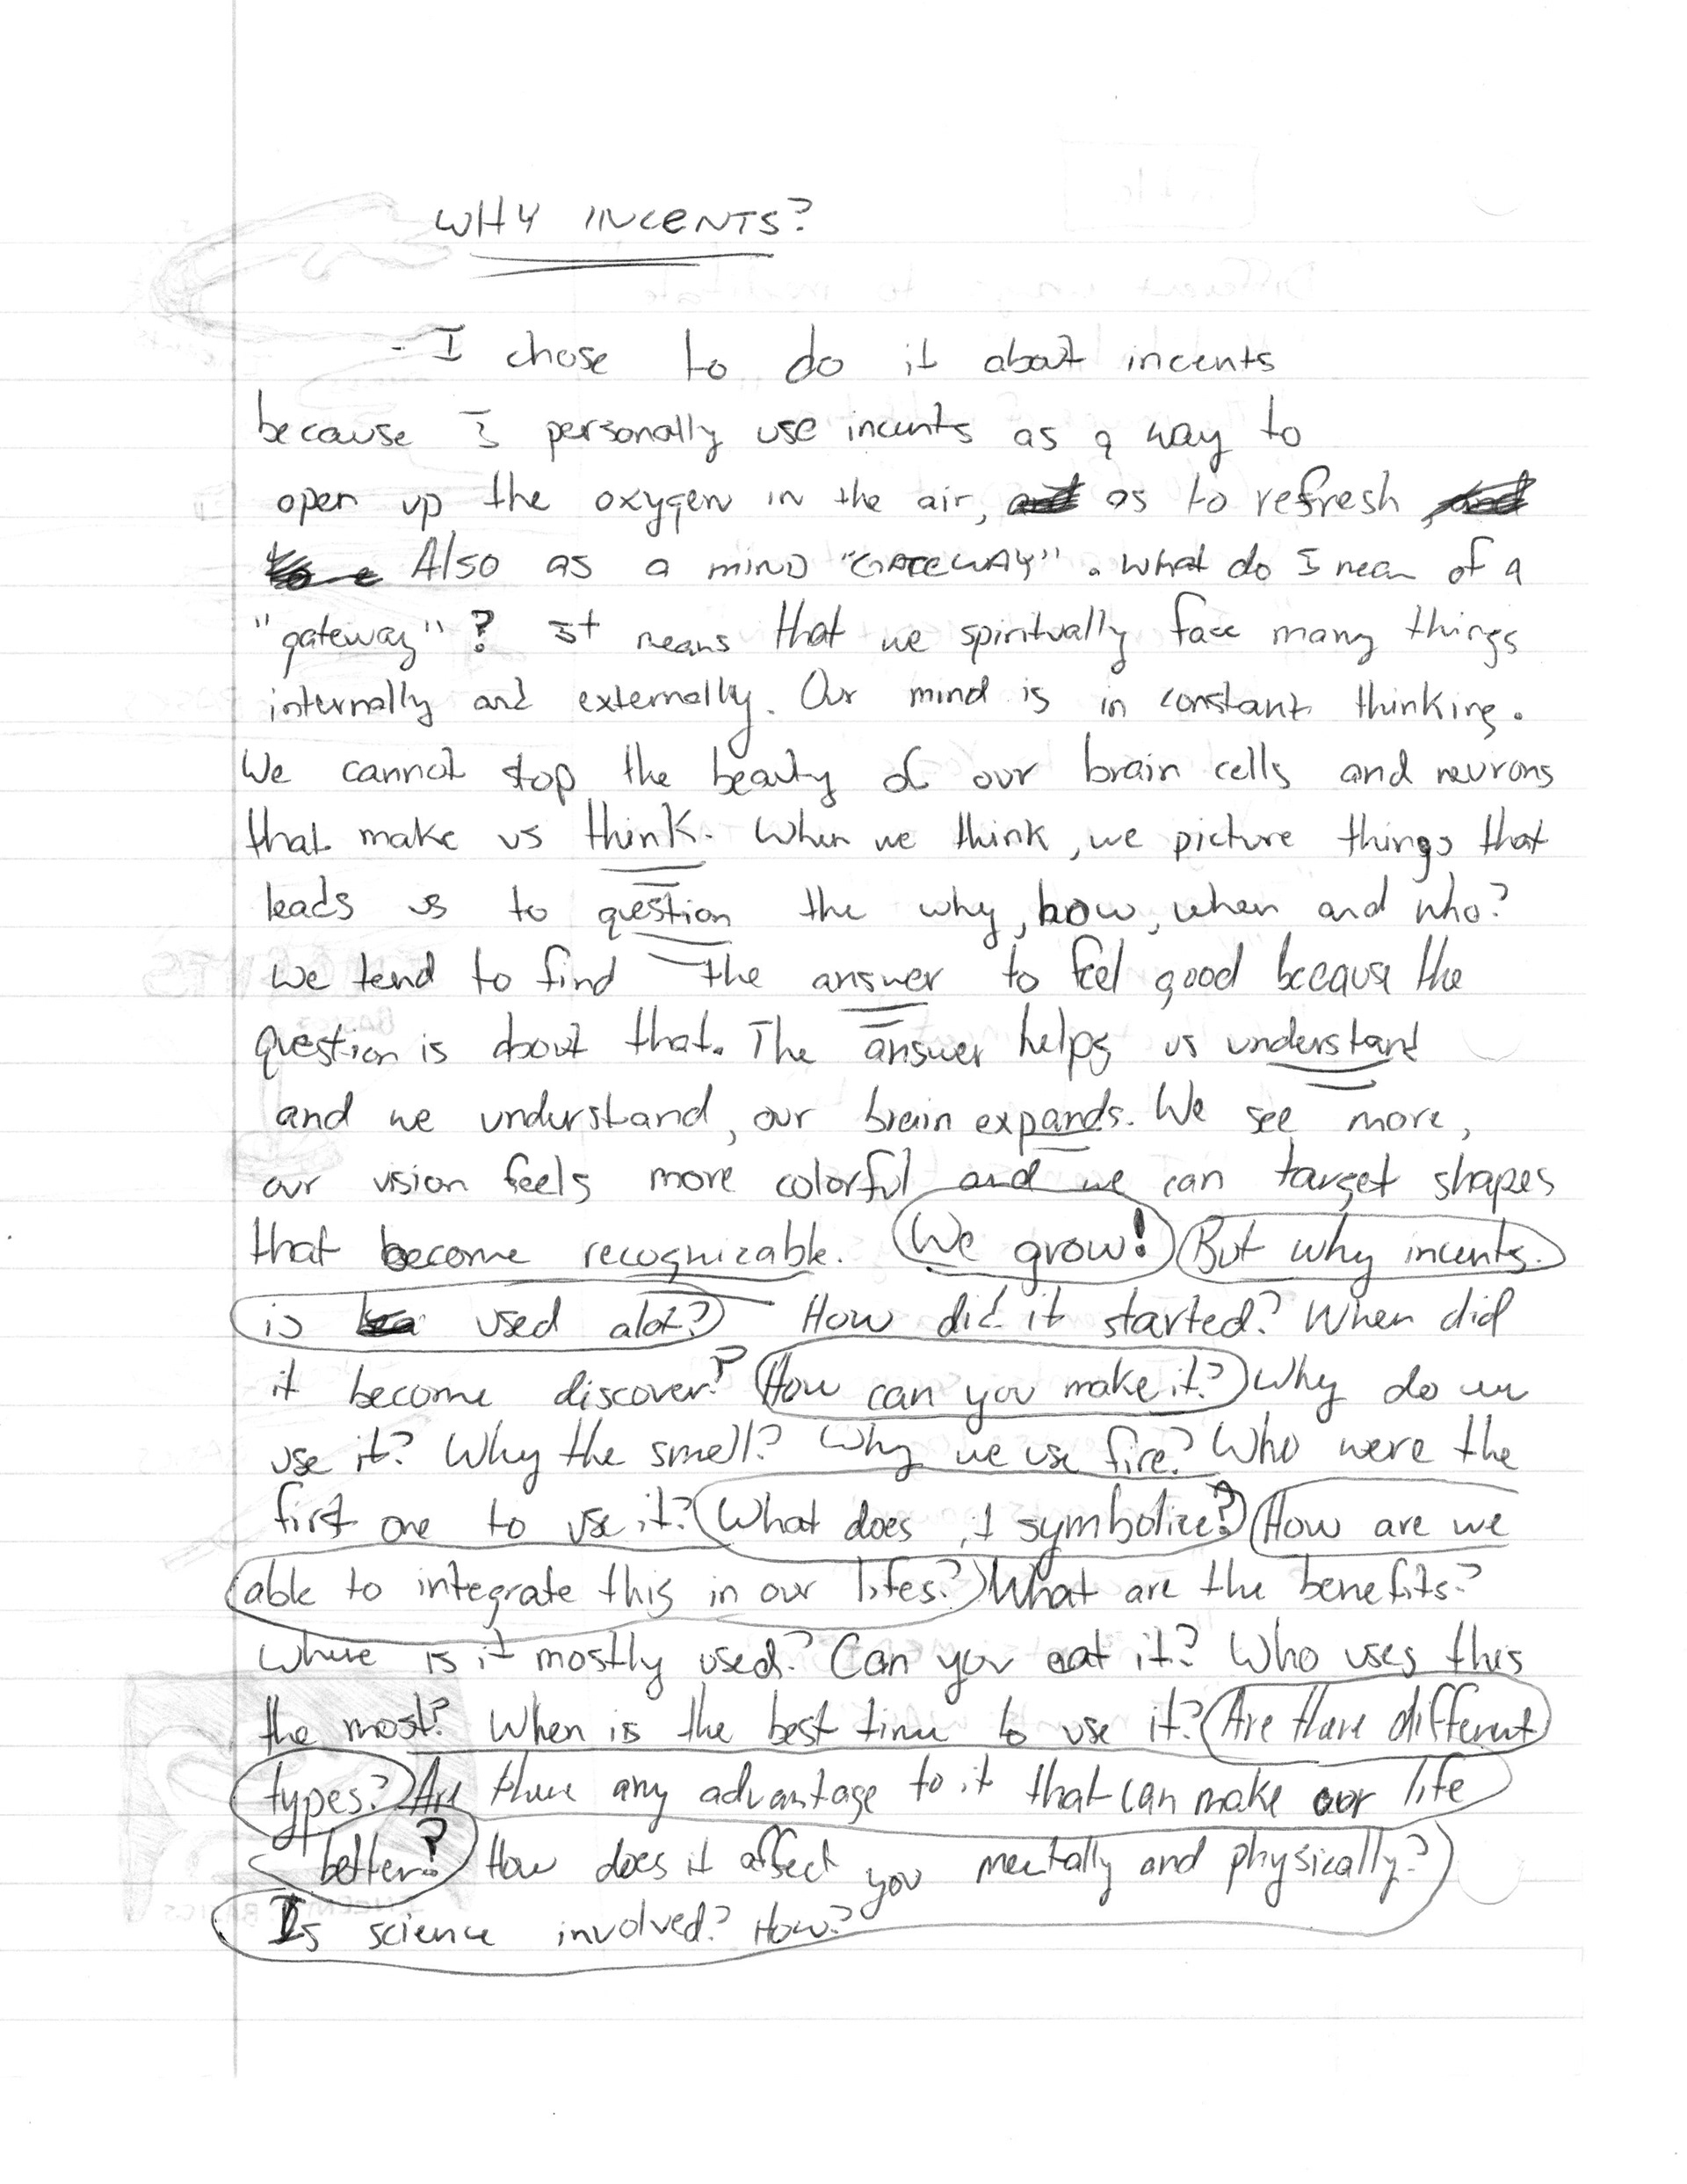 WHY INCENTS?
- I chose to do it about incents
because I personally use incents as a way to
open up the oxygen in the air, as to refresh
Also as a mind "GATEWAY". What do I mean of a
"gateway"? It means that we spiritually face many things
internally and externally. Our mind is in constant thinking.
We cannot stop the beauty of our brain cells and neurons
that make us think. When we think, we picture things that
leads us to question the why, how, when and who?
We tend to find the answer to feel good because the
question is about that. The answer helps us understand
and we understand, our brain expands. We see more,
our vision feels more colorful and we can target shapes
that become recognizable. We grow! But why incents
is used alot? How did it started? When did
it become discover? How can you make it? Why do we
use it? Why the smell? Why we use fire? Who were the
first one to use it? What does it symbolize? How are we
able to integrate this in our lifes? What are the benefits?
Where is it mostly used? Can you eat it? Who uses this
the most? When is the best time to use it? Are there different
types? Are there any advantage to it that can make our life
better? How does it affect you mentally and physically?
Is science involved? How?